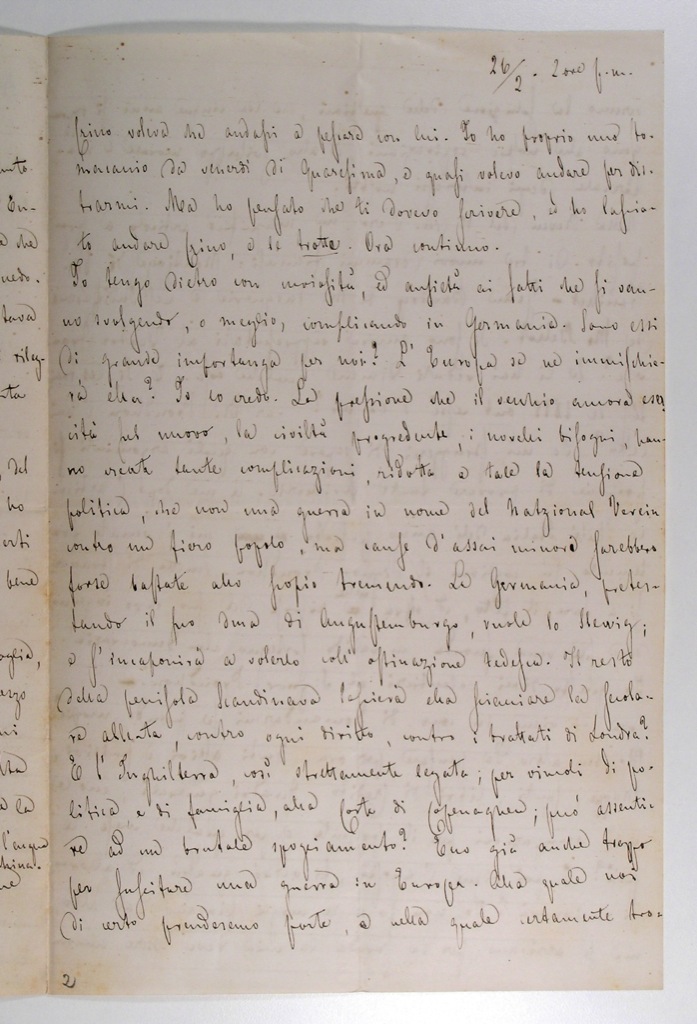 26/2. 2 ore p.m.
nto.
En-
a che
nedo.
tava
rileg-
ta
, del
ho
erti
bene
oglia,
ezzo
ni
lta
a la
l'acqua
china.
ne
Crino voleva che andassi a pescare con lui. Io ho proprio uno sto-
macaccio da venerdì di Quaresima, e quasi volevo andare per dis-
trarmi. Ma ho pensato che ti dovevo scrivere, ed ho lascia-
to andare Crino, e le trotte. Ora continuo.
Io tengo dietro con curiosità, ed ansietà ai fatti che si van-
no svolgendo, o meglio, complicando in Germania. Sono essi
di grande importanza per noi? L'Europa se ne immischie-
rà ella? Io lo credo. La pressione che il vecchio ancora eser-
cita sul nuovo, la civiltà progrediente, i novelli bisogni, han-
no create tante complicazioni, ridotta a tale la tensione
politica, che non una guerra in nome del Natzional Verein
contro un fiero popolo, ma cause d'assai minori sarebbero
forse bastate allo scopio tremendo. La Germania, protes-
tando il suo duca di Augustemburgo, vuole lo Slewig;
e s'incaponirà a volerlo coll'ostinazione tedesca. Il resto
della penisola Scandinava lascierà ella schiacciare la secola-
re alleata, contro ogni diritto, contro i trattati di Londra?
E l'Inghilterra, così strettamente legata; per vincoli di po-
litica, e di famiglia, alla Corte di Copenaghen; può assenti-
re ad un brutale spogliamento? Ecco già anche troppo
per suscitare una guerra in Europa. Alla quale noi
di certo prenderemo parte, e nella quale certamente tro-
2